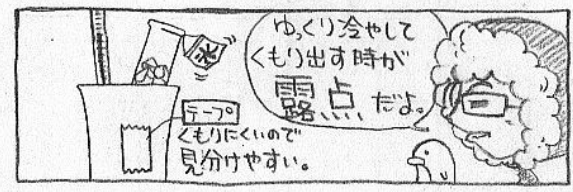 ゆっくり冷やして
くもり出す時が
露点だよ。
氷
テープ
くもりにくいので
見分けやすい。